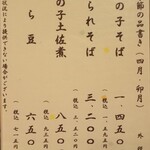 節の品書き（四月、卯月）
の子そば 一、四五〇
（税込 一、五九五
られそば 三、二〇〇
（税込 三、五二〇
の子土佐煮 八五〇
（税込 九三五
ら豆 六五〇
（税込 七一五
況により提供できない場合がございます。